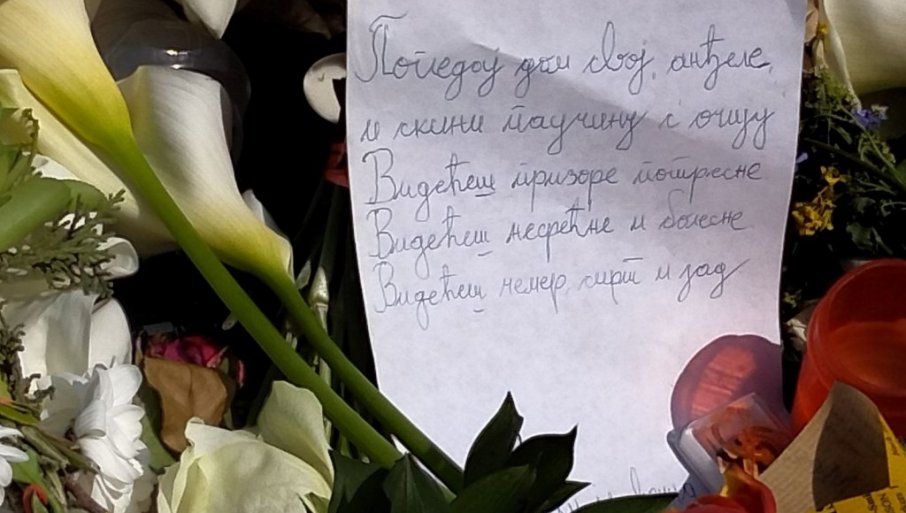 Погледај дом свој, анђеле,
и скини паучину с очију
Видећеш призоре потресне
Видећеш несрећне и болесне
Видећеш немер, смрт и јад